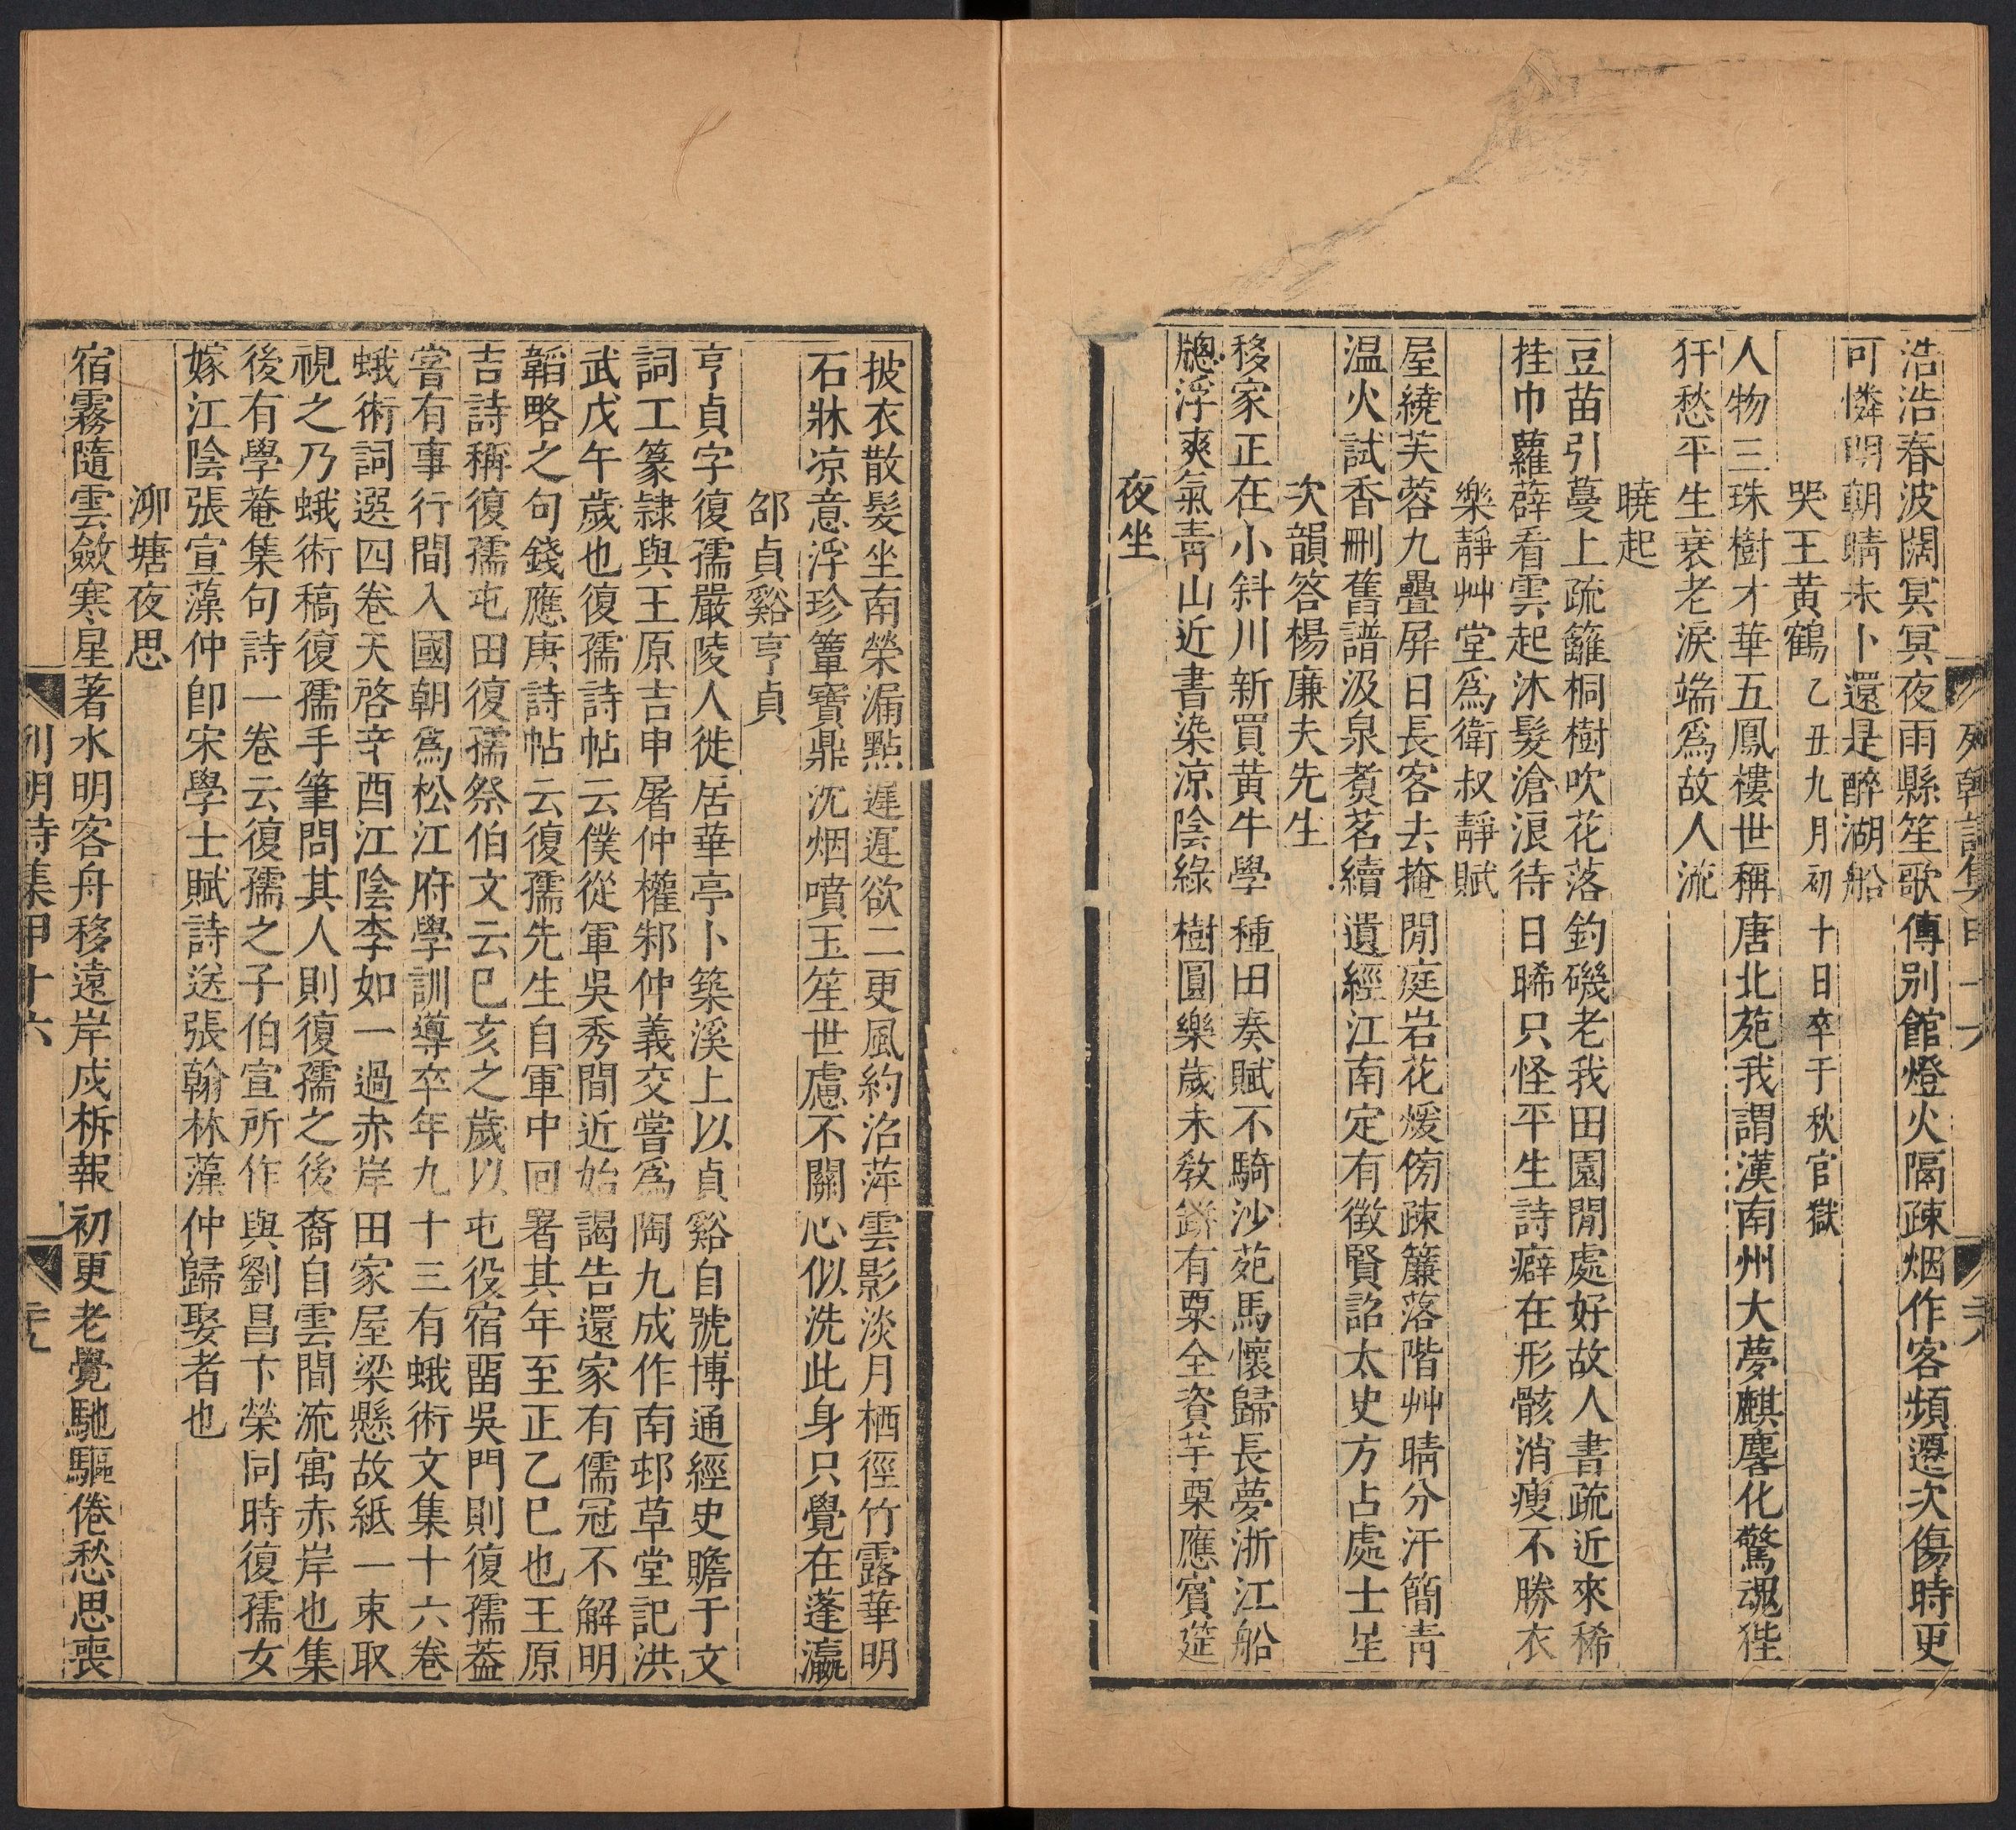 浩浩春波闊冥冥夜雨縣笙歌傳别館燈火隔疎烟作客頻遷次傷時更
可憐明朝晴未卜還是醉湖船
哭王黃鶴乙丑九月初十日卒于秋官獄
人物三珠樹才華五鳳樓世稱唐北苑我謂漢南州大夢麒麐化驚魂狴
犴愁平生衰老淚端爲故人流
曉起
豆苗引蔓上疏籬桐樹吹花落釣磯老我田園閒處好故人書疏近來稀
挂巾蘿薜看雲起沐髮滄浪待日晞只怪平生詩癖在形骸消瘦不勝衣
樂靜艸堂爲衛叔靜賦
屋繞芙蓉九疊屏日長客去掩閒庭岩花煖傍疎簾落階艸晴分汗簡青
温火試香刪舊譜汲泉煑茗續遺經江南定有徵賢詔太史方占處士星
次韻答楊廉夫先生
移家正在小斜川新買黄牛學種田奏賦不騎沙苑馬懷歸長夢浙江船
牕浮爽氣青山近書染凉陰綠樹圓樂歲未敎缾有粟全資芋栗應賓筵
夜坐
列朝詩集甲十六
披衣散髮坐南榮漏點遲遲欲二更風約沼萍雲影淡月栖徑竹露華明
石牀凉意浮珍簟寶鼎沉烟噴玉笙世慮不關心似洗此身只覺在蓬瀛
邵貞谿亨貞
亨貞字復孺嚴陵人徙居華亭卜築溪上以貞谿自號博通經史贍于文
詞工篆隷與王原吉申屠仲權邾仲義交嘗爲陶九成作南邨草堂記洪
武戊午歲也復孺詩帖云僕從軍吳秀間近始謁告還家有儒冠不解明
韜略之句錢應庚詩帖云復孺先生自軍中回署其年至正乙巳也王原
吉詩稱復孺屯田復孺祭伯文云巳亥之歲以屯役宿畱吳門則復孺葢
嘗有事行間入國朝爲松江府學訓導卒年九十三有蛾術文集十六卷
蛾術詞選四卷天啓辛酉江陰李如一過赤岸田家屋梁懸故紙一束取
視之乃蛾術稿復孺手筆問其人則復孺之後裔自雲間流寓赤岸也集
後有學菴集句詩一卷云復孺之子伯宣所作與劉昌卞榮同時復孺女
嫁江陰張宣藻仲卽宋學士賦詩送張翰林藻仲歸娶者也
泖塘夜思
宿霧隨雲斂寒星著水明客舟移遠岸戍柝報初更老覺馳驅倦愁思喪
列朝詩集甲十六